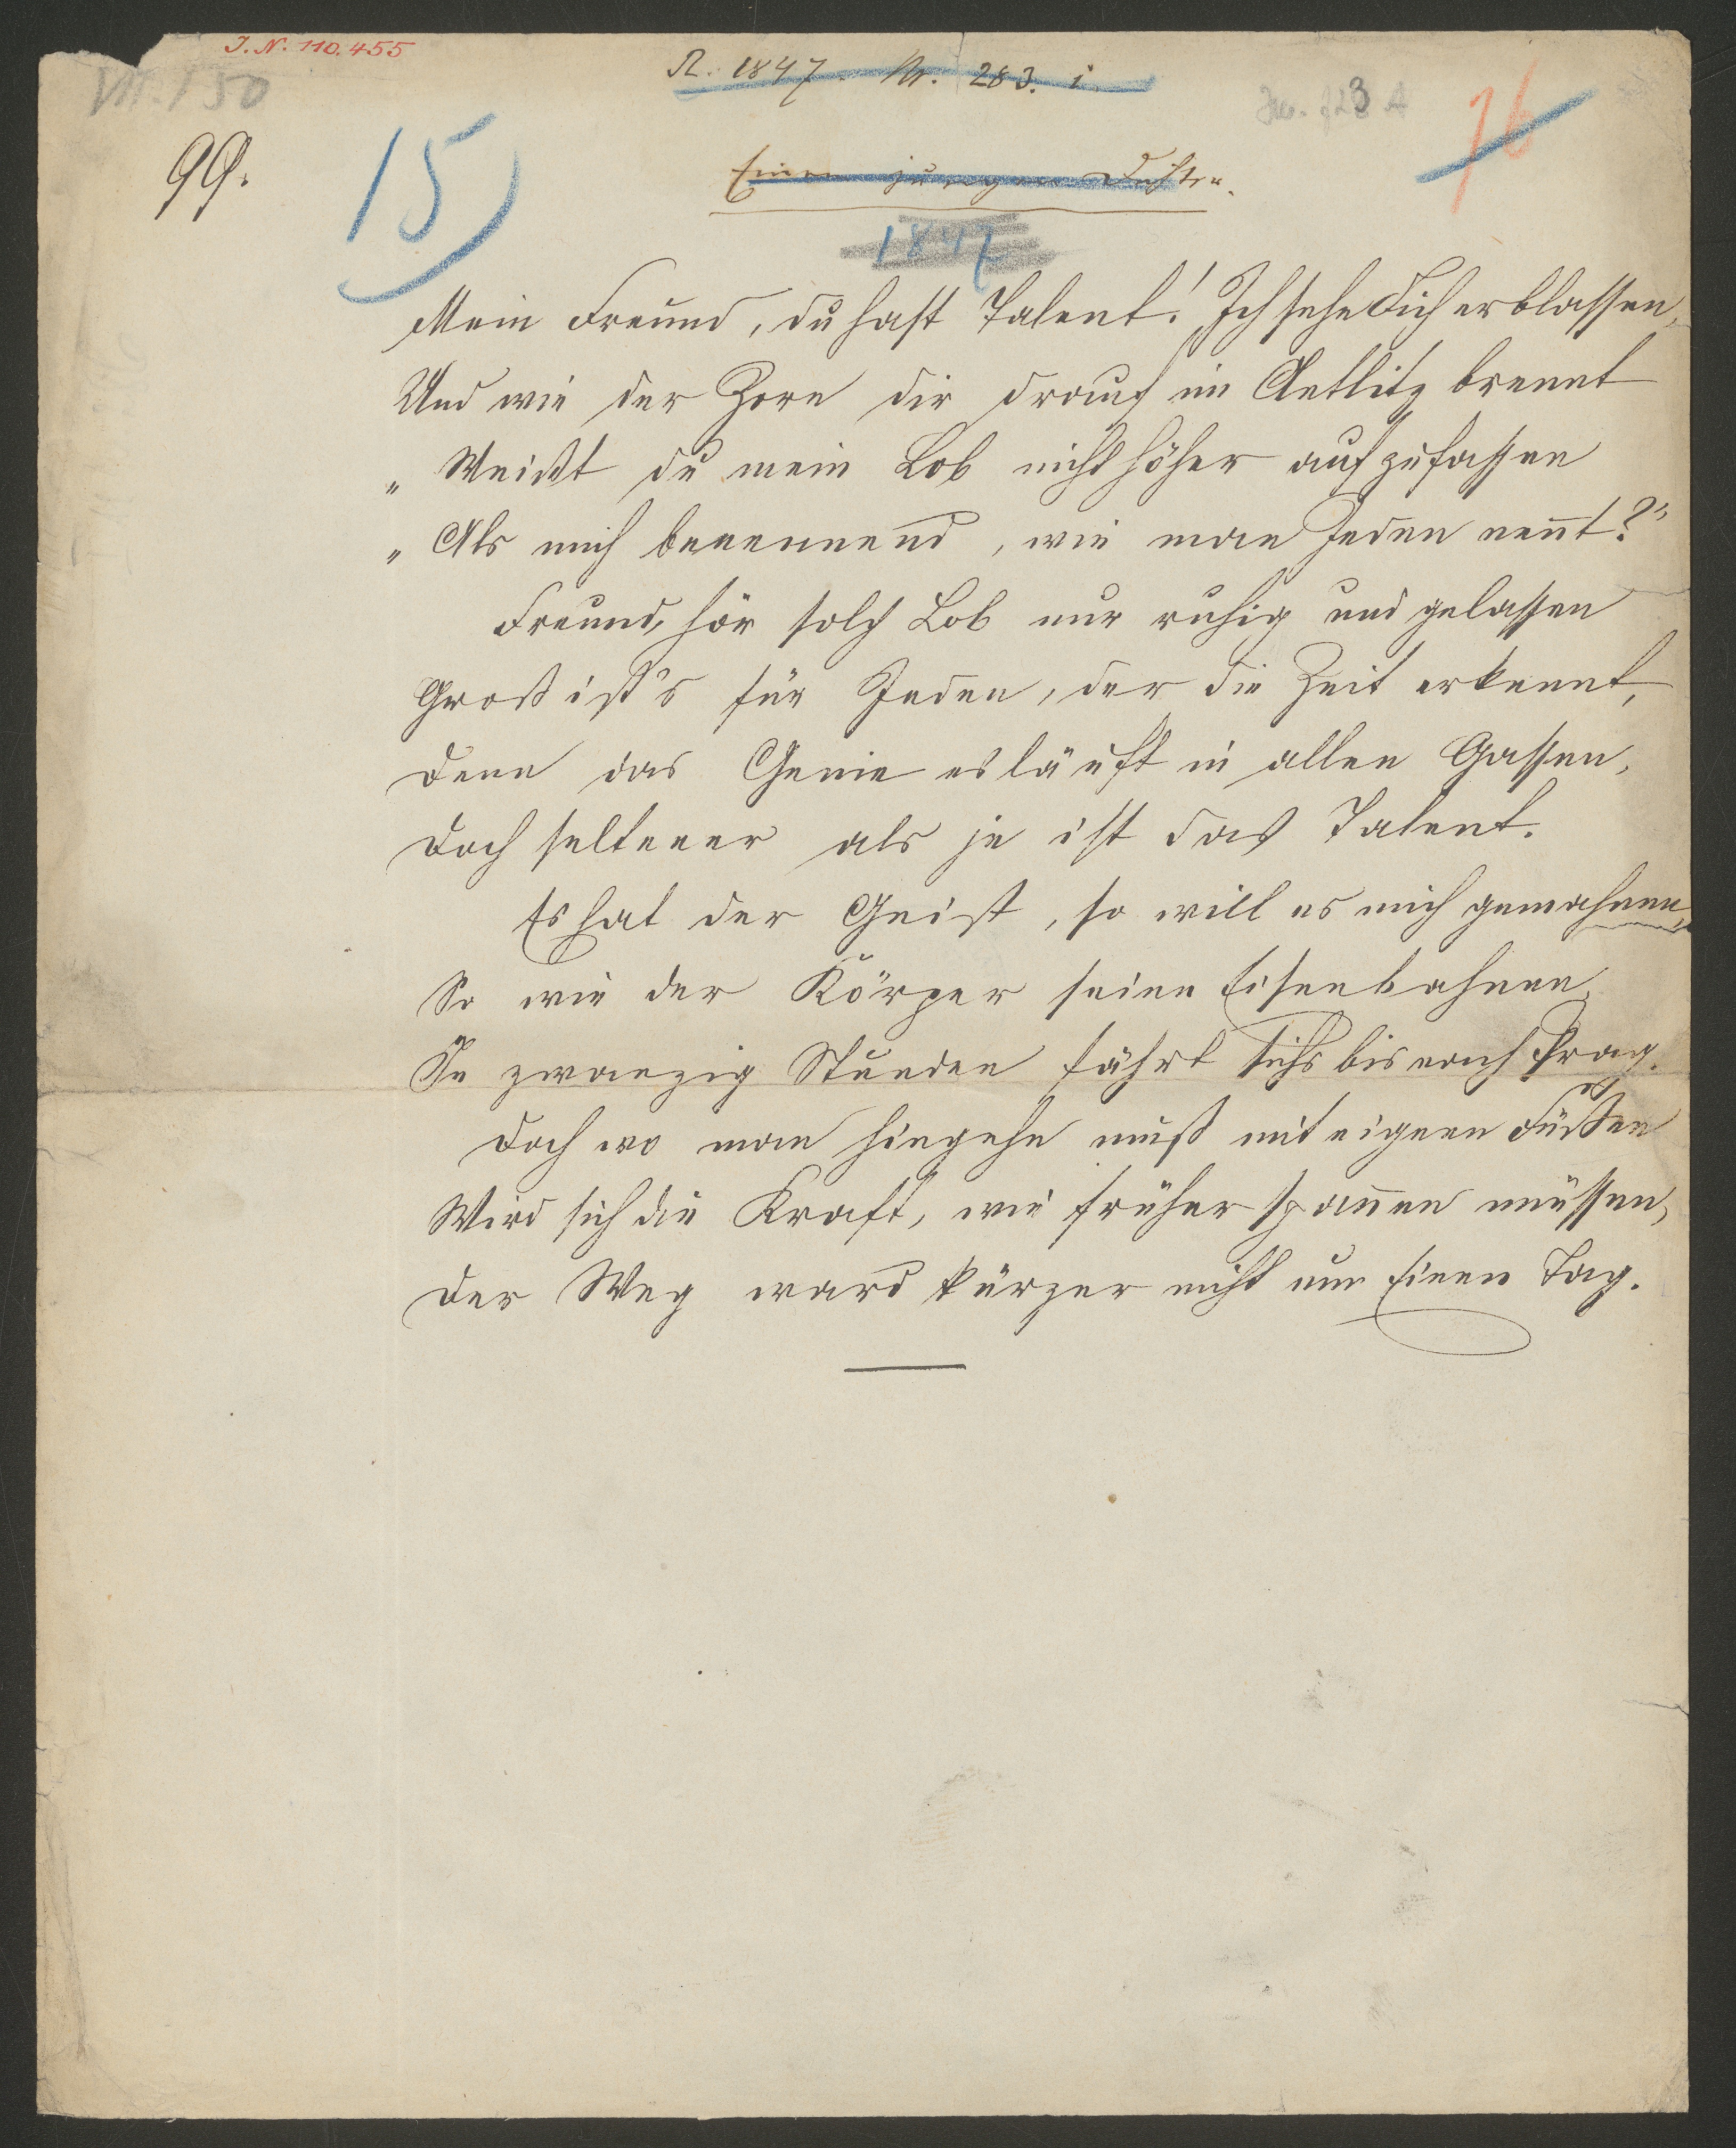 J. N. 110.455
VII. 150
R. 1847. Nr. 283. i.
99.
15)
16
Einem jungen Dichter.
1847
Mein Freund, du hast Talent! Ich sehe Dich erblassen,
Und wie der Zorn dir drauf im Antlitz brennt
„Weißt du mein Lob nicht höher aufzufassen
„Als mich benennend, wie man Jeden nen̄t?"
Freund, hör solch Lob nur ruhig und gelassen
Groß ist's für Jeden, der die Zeit erkennt,
Denn das Genie es läuft in allen Gassen,
Doch seltener als je ist das Talent.
Es hat der Geist, so will es mich gemahnen,
So wie der Körper seine Eisenbahnen,
In zwanzig Stunden fährt sichs bis nach Prag.
Doch wo man hingehn muß mit eignen Füßen
Wird sich die Kraft, wie früher span̄en müssen,
Der Weg ward kürzer nicht um Einen Tag.